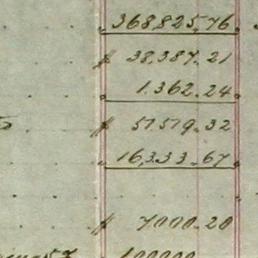 368,825.76
$ 38,387.21
1.362.24
$ 51,519.32
16,333.67
$ 7000.20